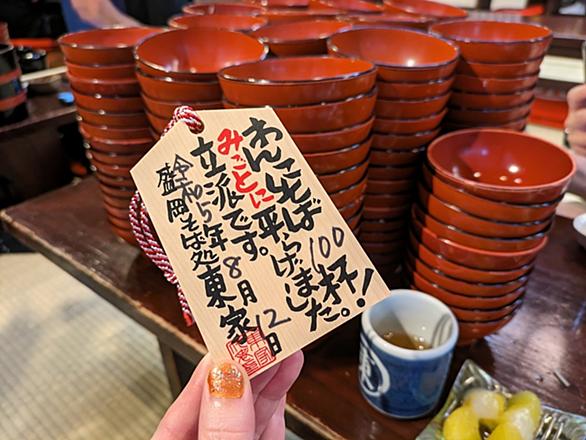 わんこそば100杯!
みごとに平らげました。
立派です。
令和5年8月12日
盛岡そば処東家